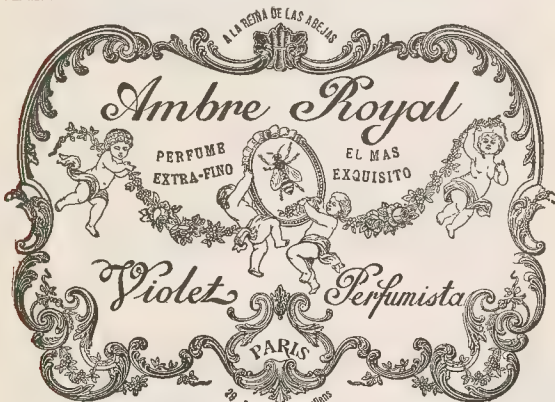 A LA REINA DE LAS ABEJAS
Ambre Royal
PERFUME
EXTRA-FINO
EL MAS
EXQUISITO
Violet
Perfumista
PARIS
29,